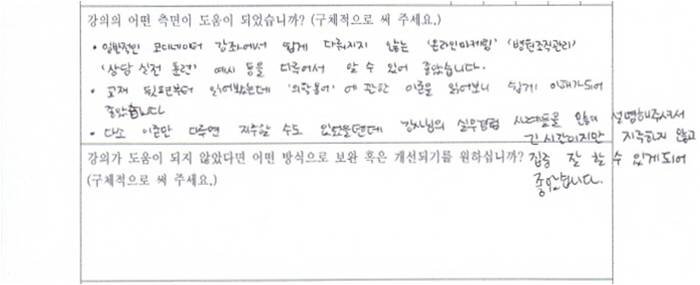 강의의 어떤 측면이 도움이 되었습니까? (구체적으로 써 주세요.)
• 일반적인 코디네이터 강좌에서 쉽게 다뤄지지 않는 '온라인마케팅' '병원조직관리'
'상담 실전 훈련' 예시 등을 다루어서 알 수 있어 좋았습니다.
• 교재 뒷부분부터 읽어봤는데 '의학용어'에 관한 이론을 읽어보니 쉽게 이해가 되어
좋았습니다
• 다소 이론만 다루면 지루할 수도 있었을텐데 강사님의 실무경험 사례들을 설명해주셔서
긴 시간이지만 지루하지 않고
집중 잘 할 수 있게되어
좋았습니다.
강의가 도움이 되지 않았다면 어떤 방식으로 보완 혹은 개선되기를 원하십니까?
(구체적으로 써 주세요.)